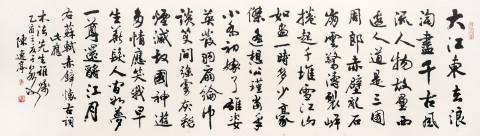 大江東去浪
淘盡千古風
流人物故壘西
邊人道是三國
周郎赤壁亂石
崩雲驚濤裂岸
捲起千堆雪江山
如畫一時多少豪
傑遙想公瑾當年
小喬初嫁了雄姿
英發羽扇綸巾
談笑間強虜灰飛
煙滅故國神遊
多情應笑我早
生華髮人間如夢
一尊還酹江月
右蘇軾赤壁懷古詞
木法先生雅屬